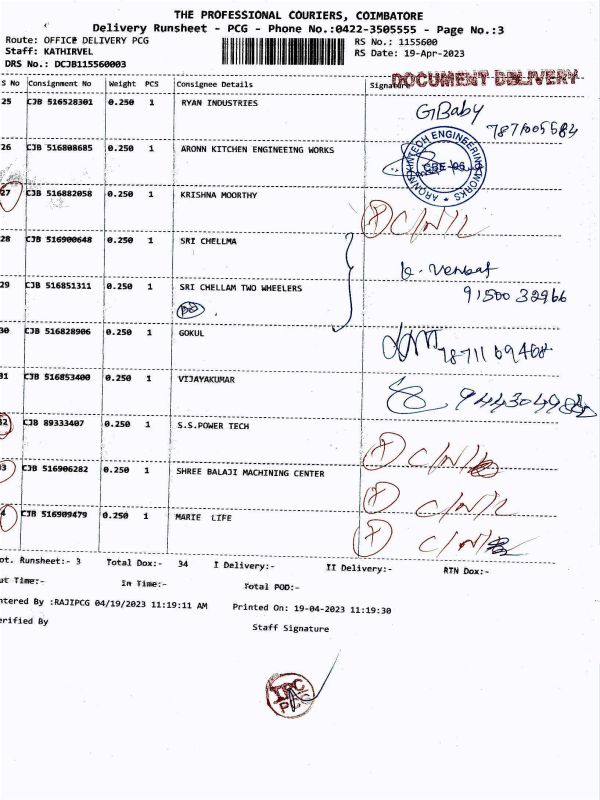 THE PROFESSIONAL COURIERS, COIMBATORE
Delivery Runsheet - PCG - Phone No.:0422-3505555 - Page No.:3
Route: OFFICE DELIVERY PCG RS No.: 1155600
Staff: KATHIRVEL RS Date: 19-Apr-2023
DRS No.: DCJB115560003
DOCUMENT DELIVERY
S No Consignment No Weight PCS Consignee Details Signature
25 CJB 516528301 0.250 1 RYAN INDUSTRIES G Baby
26 CJB 516808685 0.250 1 ARONN KITCHEN ENGINEEING WORKS
27 CJB 516882058 0.250 1 KRISHNA MOORTHY C/N/L
28 CJB 516900648 0.250 1 SRI CHELLMA
29 CJB 516851311 0.250 1 SRI CHELLAM TWO WHEELERS
K. Venkat
30 CJB 516828906 0.250 1 GOKUL
31 CJB 516853400 0.250 1 VIJAYAKUMAR
32 CJB 89333407 0.250 1 S.S.POWER TECH
33 CJB 516906282 0.250 1 SHREE BALAJI MACHINING CENTER C/N/L
CJB 516909479 0.250 1 MARIE LIFE
ot. Runsheet:- 3 Total Dox:- 34 I Delivery:- II Delivery:- RTN Dox:-
ut Time:- In Time:- Total POD:-
ntered By :RAJIPCG 04/19/2023 11:19:11 AM Printed On: 19-04-2023 11:19:30
erified By Staff Signature